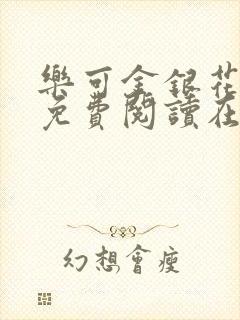 樂可金銀花
免費閱讀在
幻想會瘦